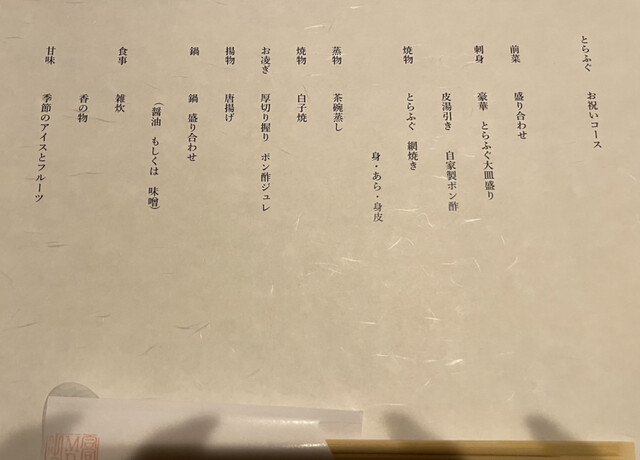 とらふぐ　お祝いコース
前菜　盛り合わせ
刺身　豪華　とらふぐ大皿盛り
皮湯引き　自家製ポン酢
焼物　とらふぐ　網焼き
身・あら・身皮
蒸物　茶碗蒸し
焼物　白子焼
お凌ぎ　厚切り握り　ポン酢ジュレ
揚物　唐揚げ
鍋　鍋　盛り合わせ
（醤油　もしくは　味噌）
食事　雑炊
香の物
甘味　季節のアイスとフルーツ